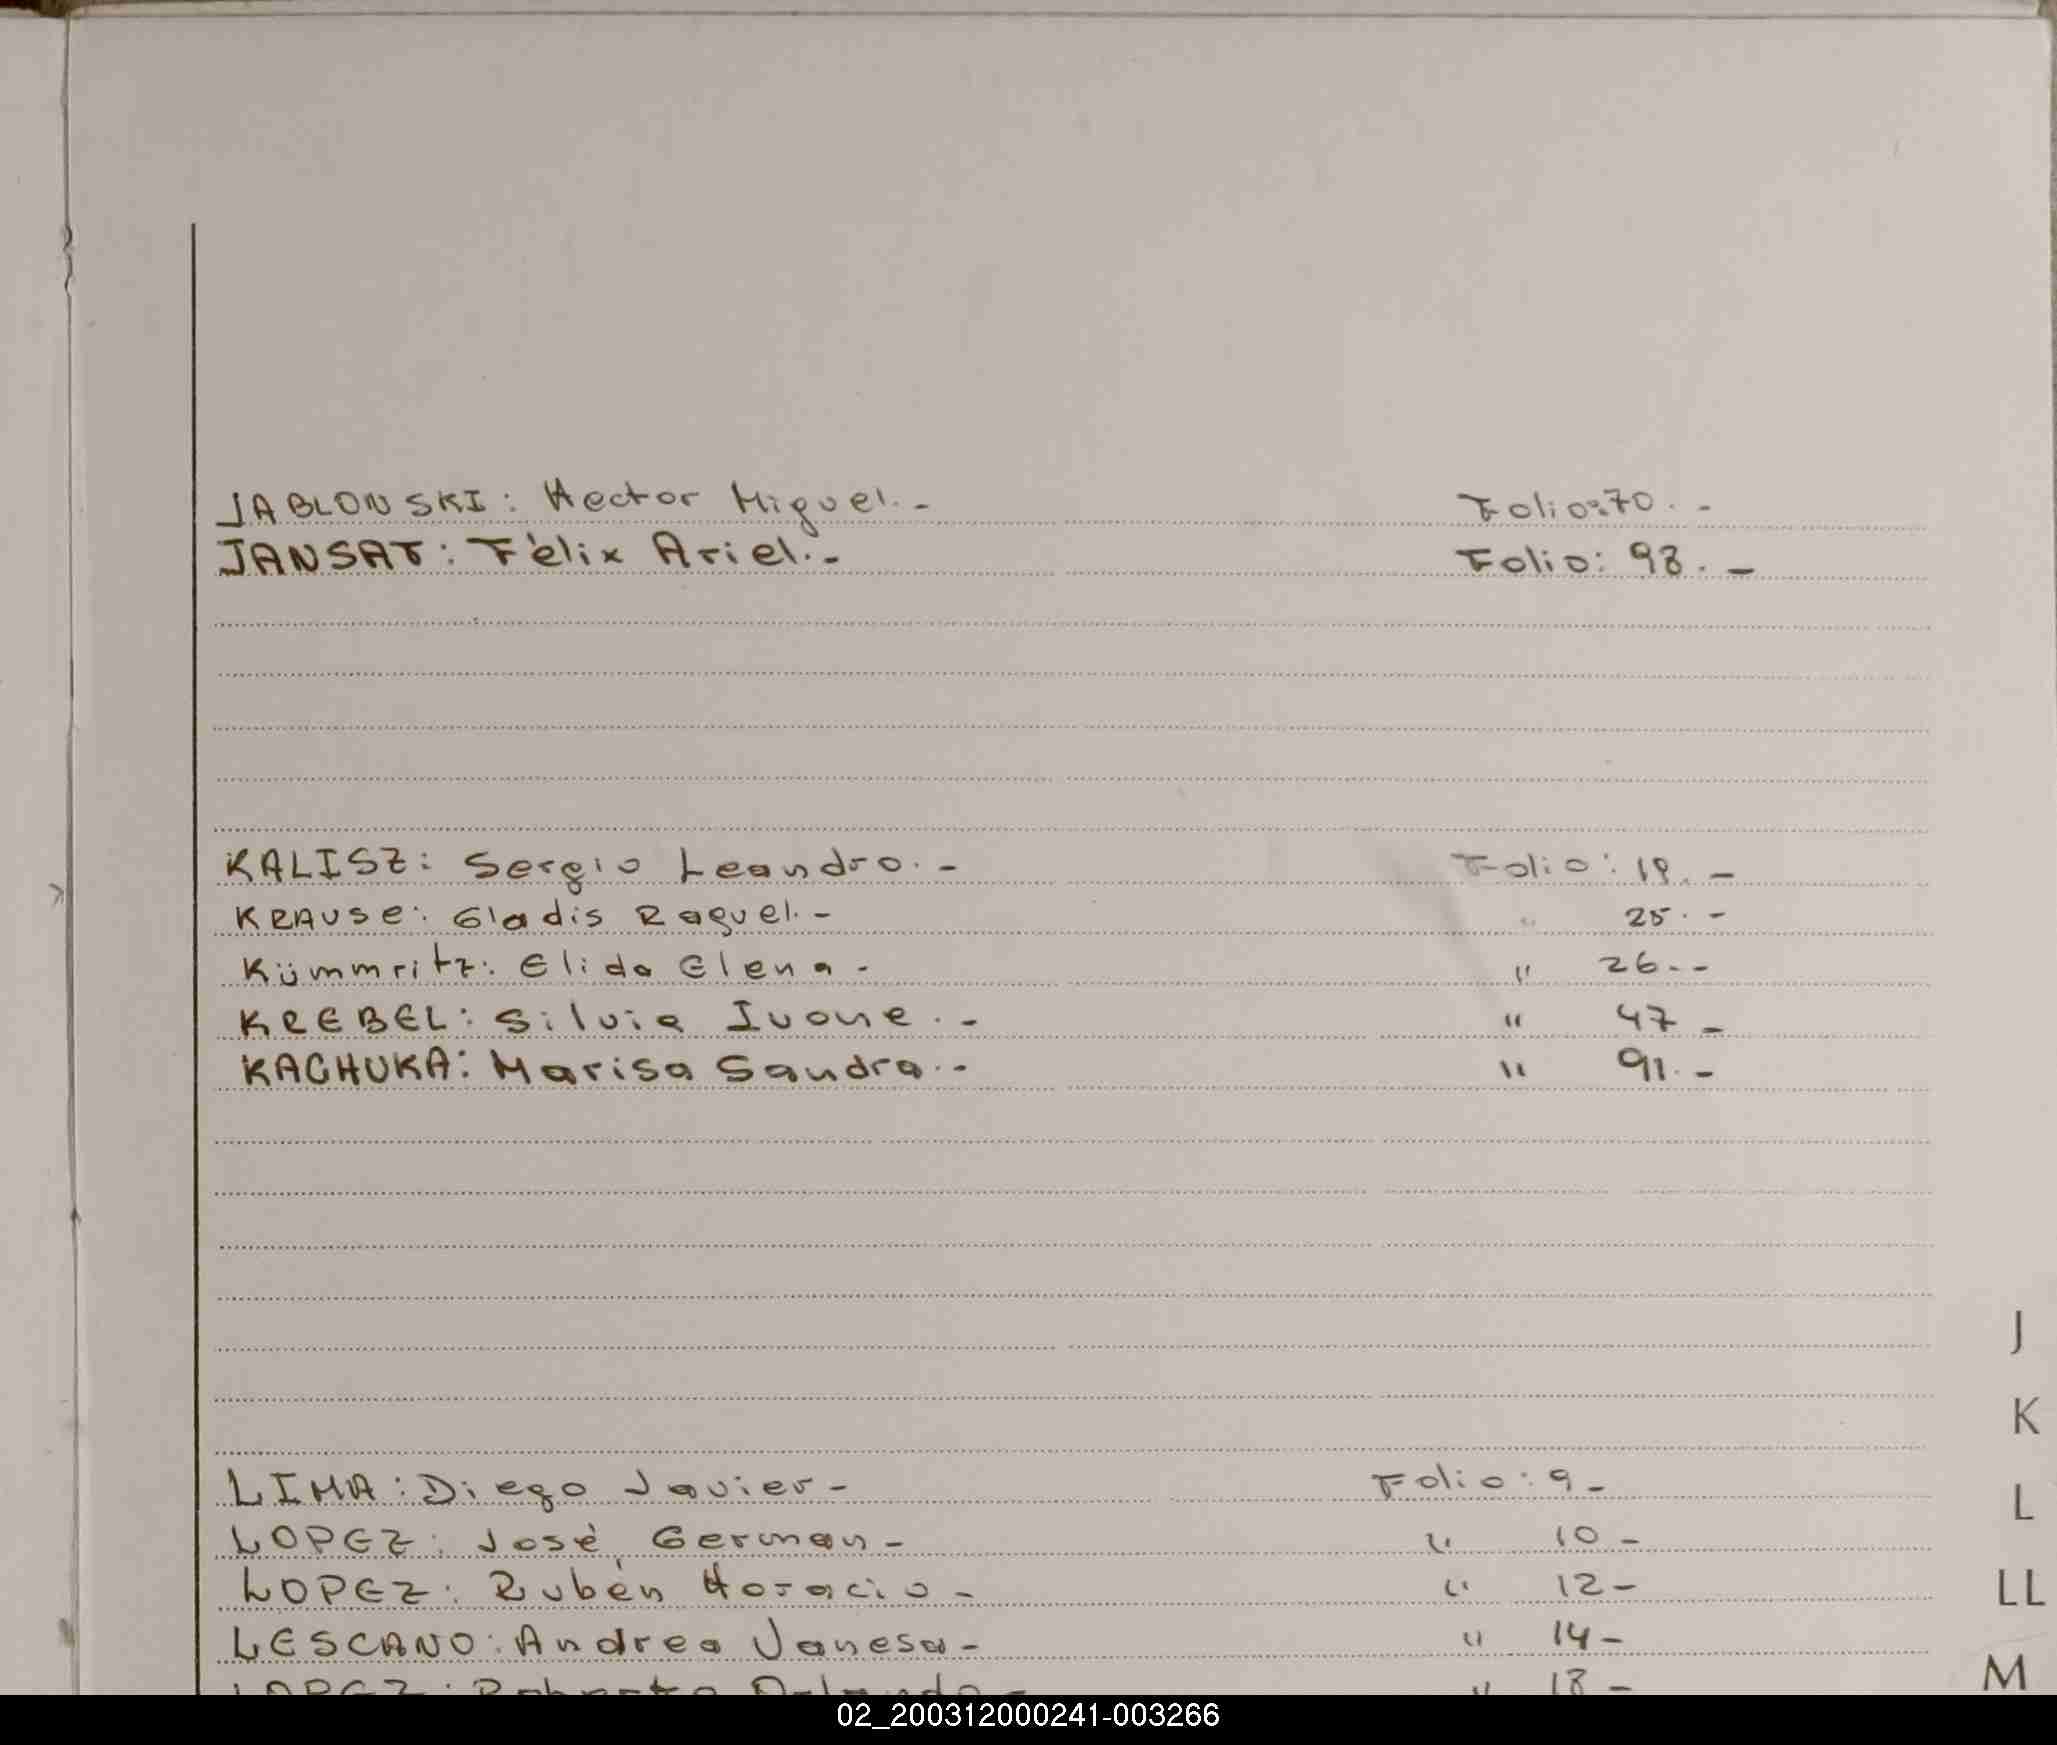 JABLONSKI: Hector Miguel.- Folio:70.-
JANSAT: Félix Ariel.- Folio: 98.-
KALISZ: Sergio Leandro.- Folio: 19.-
KRAUSE: Gladis Raquel.- " 25.-
Kümmritz: Elida Elena - " 26.-
KREBEL: Silvia Ivone.- " 47 -
KACHUKA: Marisa Sandra.- " 91.-
J
K
LIMA: Diego Javier - Folio: 9 -
L
LOPEZ: José German - " 10 -
LOPEZ: Rubén Horacio - " 12 -
LL
LESCANO: Andrea Vanesa - " 14 -
M
LOPEZ: Roberto - " 18 -
02_200312000241-003266